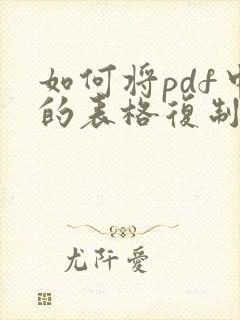 如何将pdf中
的表格復制
尤阡愛